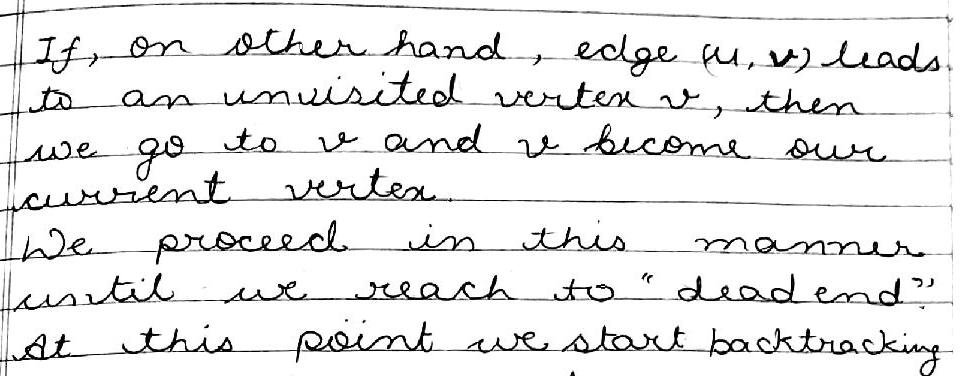 If, on other hand, edge (u, v) leads
to an unvisited vertex v, then
we go to v and v become our
current vertex.
We proceed in this manner
until we reach to "dead end".
At this point we start backtracking